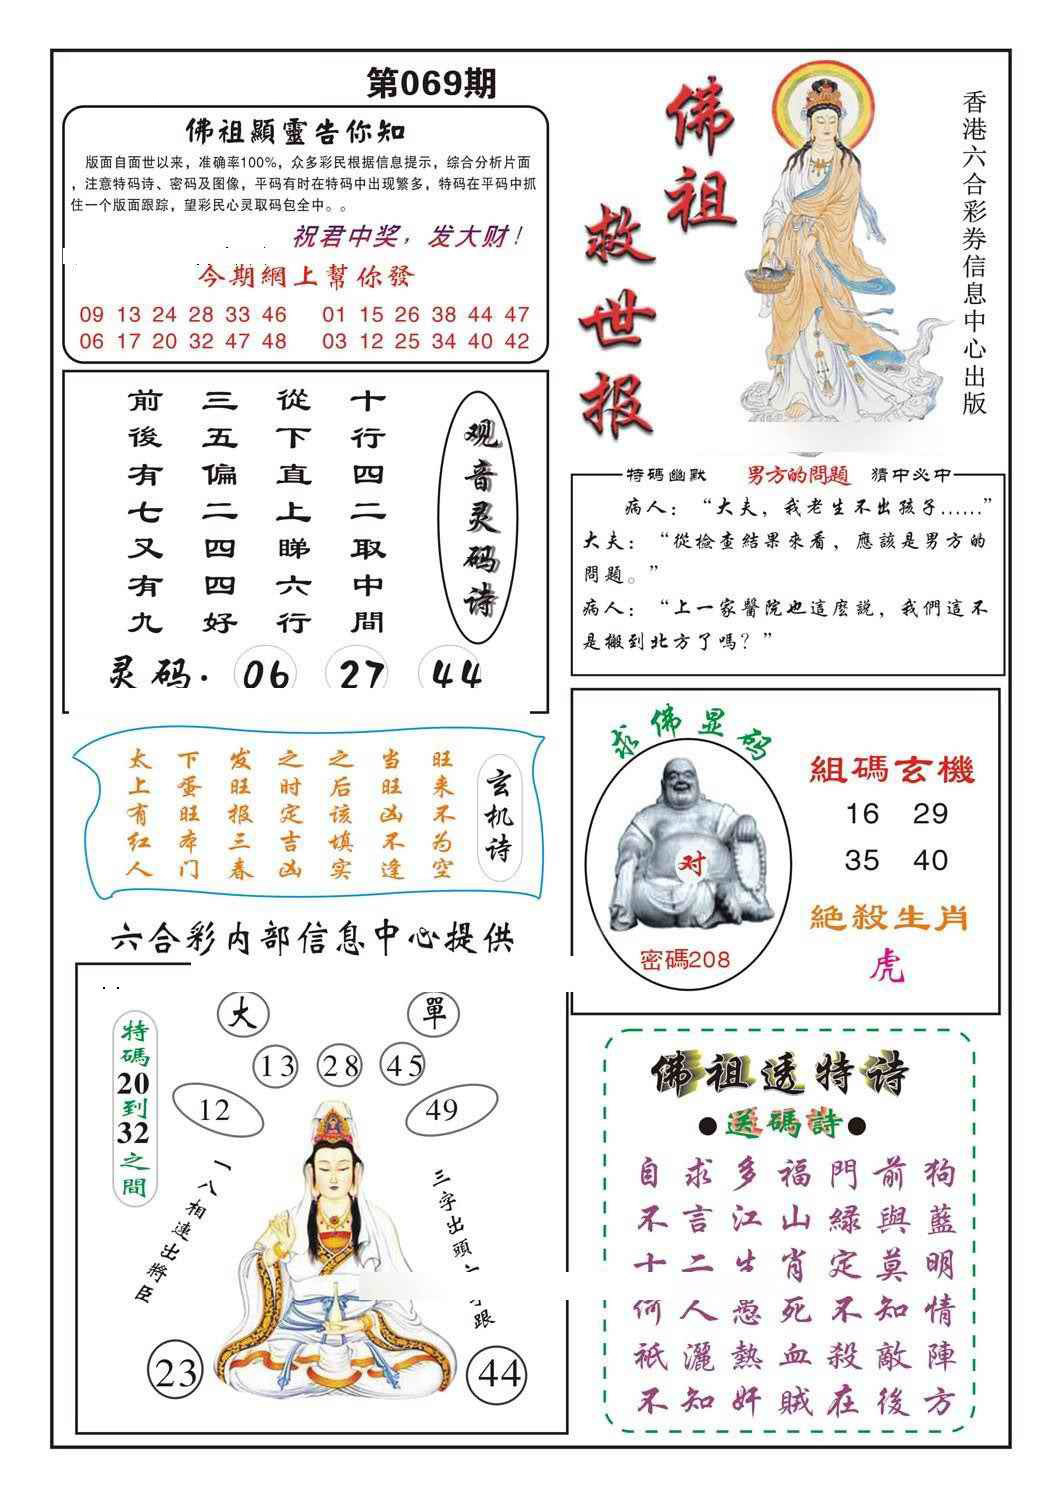 第069期
佛祖顯靈告你知
版面自面世以来，准确率100%，众多彩民根据信息提示，综合分析片面
，注意特码诗、密码及图像，平码有时在特码中出现繁多，特码在平码中抓
住一个版面跟踪，望彩民心灵取码包全中。。
祝君中奖，发大财！
今期網上幫你發
09 13 24 28 33 46 01 15 26 38 44 47
06 17 20 32 47 48 03 12 25 34 40 42
佛祖
救世报
香港六合彩券信息中心出版
观音灵码诗
十行四二取中間
從下直上睇六行
三五偏二四四好
前後有七又有九
灵码. 06 27 44
特碼幽默 男方的問題 猜中必中
病人：“大夫，我老生不出孩子……”
大夫：“從檢查結果來看，應該是男方的
問題。”
病人：“上一家醫院也這麽説，我們這不
是搬到北方了嗎？”
玄机诗
旺来不为空
当旺凶不逢
之后该填实
之时定吉凶
发旺报三春
下蛋旺本门
太上有红人
求佛显码
对
密碼208
組碼玄機
16 29
35 40
絕殺生肖
虎
六合彩内部信息中心提供
特碼20到32之間
大 單
13 28 45
12 49
一八相連出將臣
三字出頭
跟
23 44
佛祖透特诗
●送碼詩●
自求多福門前狗
不言江山緑與藍
十二生肖定莫明
何人愚死不知情
祇灑熱血殺敵陣
不知奸賊在後方